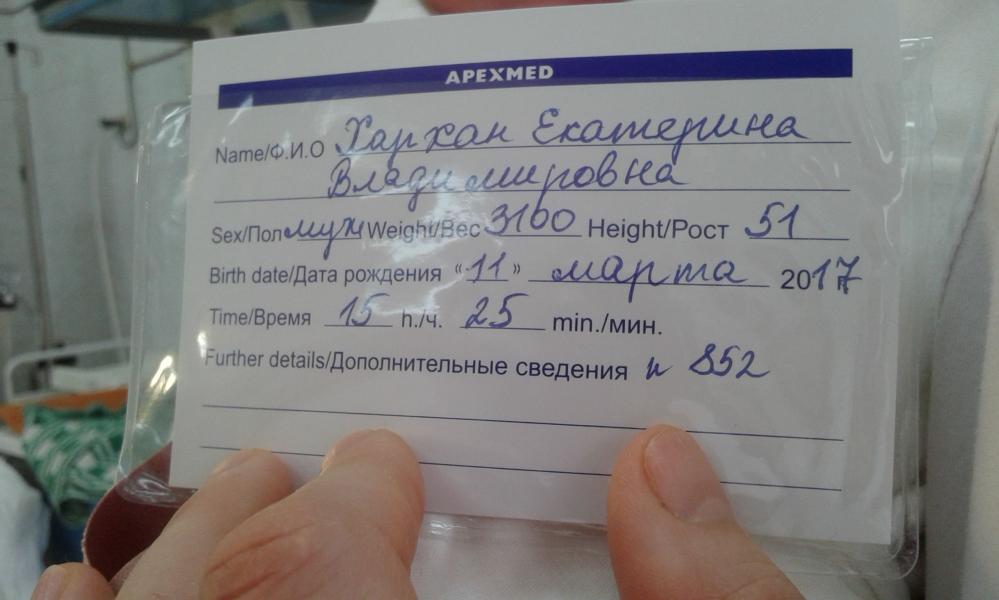 APEXMED
Name/Ф.И.О Хархан Екатерина
Владимировна
Sex/Пол муж Weight/Вес 3100 Height/Рост 51
Birth date/Дата рождения «11» марта 2017
Time/Время 15 h./ч. 25 min./мин.
Further details/Дополнительные сведения н 852